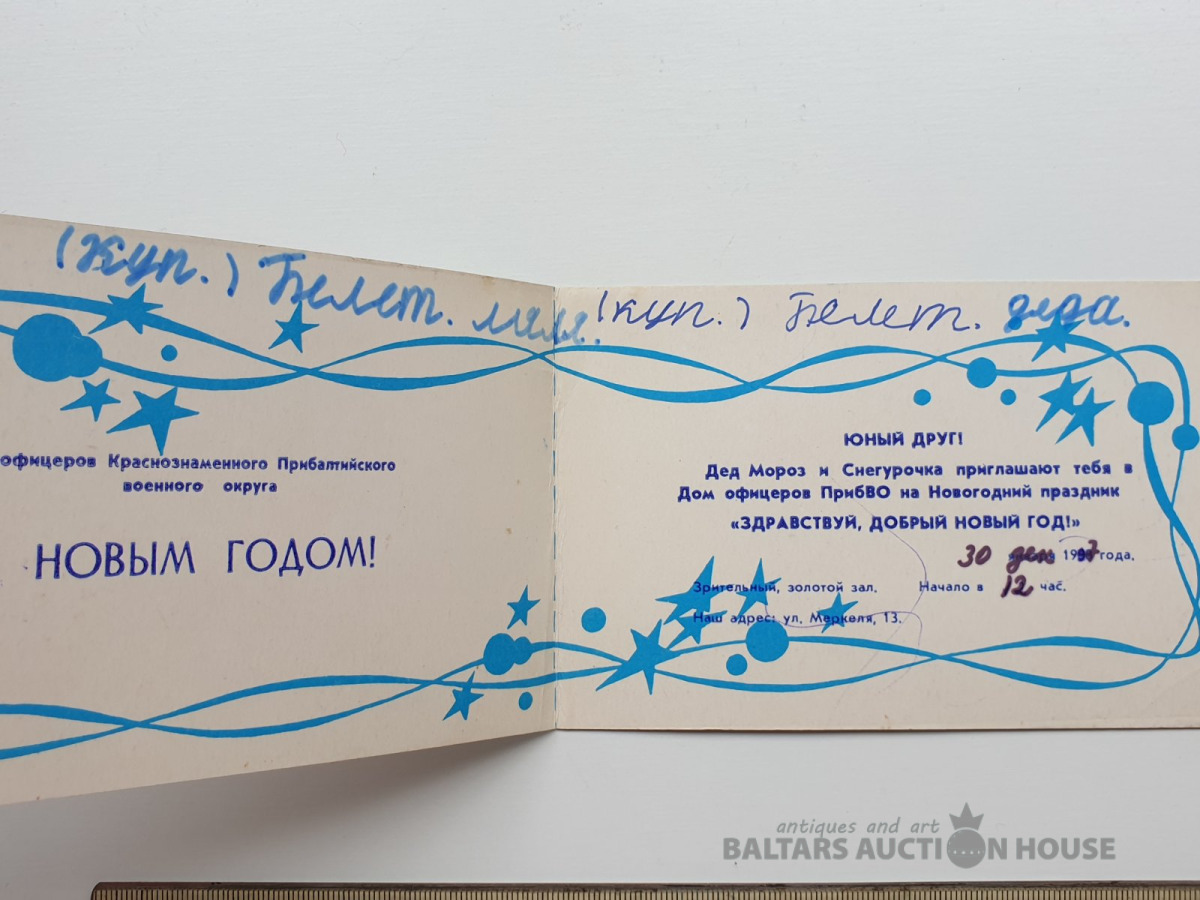 (куп.) Белет.
офицеров Краснознаменного Прибалтийского
военного округа
НОВЫМ ГОДОМ!
(куп.) Белет. деда.
ЮНЫЙ ДРУГ!
Дед Мороз и Снегурочка приглашают тебя в
Дом офицеров ПрибВО на Новогодний праздник
«ЗДРАВСТВУЙ, ДОБРЫЙ НОВЫЙ ГОД!»
30 дек 1987 года.
Зрительный, золотой зал. Начало в 12 час.
Наш адрес: ул. Меркеля, 13.
antiques and art
BALTARS AUCTION HOUSE